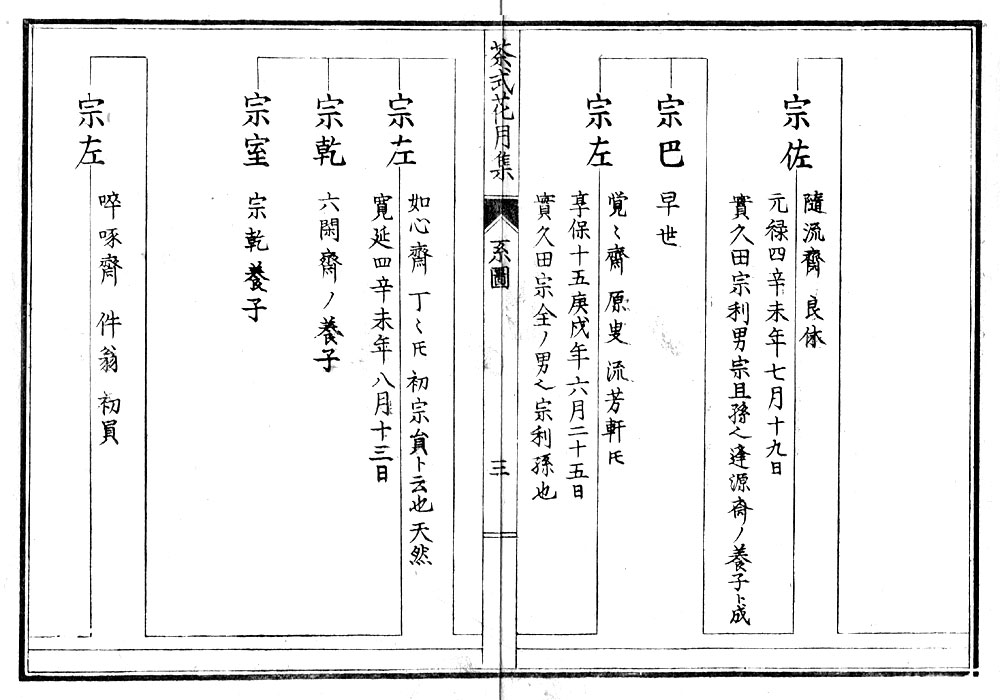 宗佐
隨流齋 良休
元禄四辛未年七月十九日
實久田宗利男宗且孫〻逢源齋ノ養子ト成
宗巴
早世
宗左
覚〻斎 原叟 流芳軒𪜈
享保十五庚戌年六月二十五日
實久田宗全ノ男〻宗利孫也
茶式花月集
系圖
三
宗左
如心齋 丁〻𪜈 初宗員ト云也天然
寛延四辛未年八月十三日
宗乾
六閑齋ノ養子
宗室
宗乾養子
宗左
啐啄齋 件翁 初員